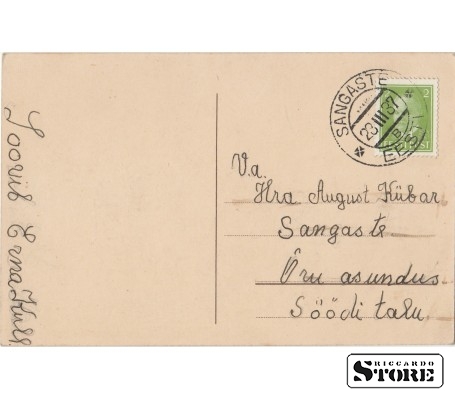 Soovib Erna Kull
SANGASTE
23 III 37
B
EESTI
2
EESTI
V.a.
Hra August Kübar
Sangaste
Õru asundus
Söödi talu.
RICCARDO
STORE